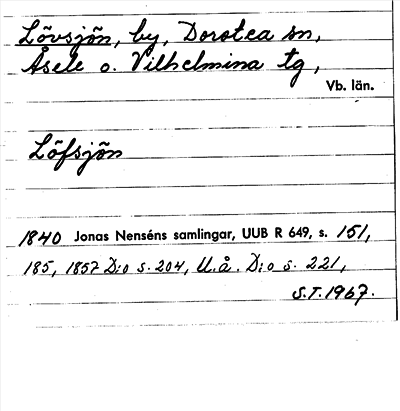 Lövsjön, by, Dorotea sn,
Åsele o. Vilhelmina tg,
Vb. län.
Löfsjön
1840 Jonas Nenséns samlingar, UUB R 649, s. 151,
185, 1857 D:o s. 204, U.å. D:o s. 221,
S.T. 1967.